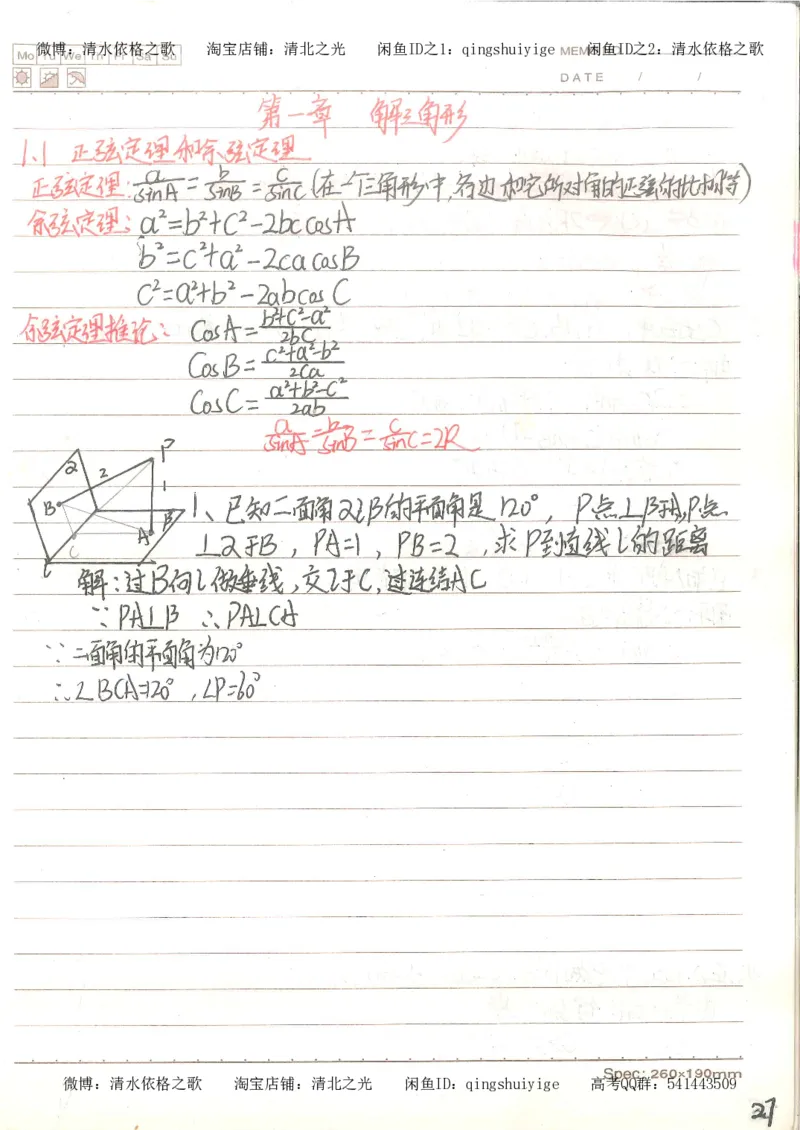 微博：清水依格之歌 淘宝店铺：清北之光 闲鱼ID之1：qingshuiyige 闲鱼ID之2：清水依格之歌
Mo Tu We Th Fr Sa Su
DATE / /
第一章 解三角形
1.1 正弦定理和余弦定理
正弦定理：a/sinA = b/sinB = c/sinC (在一个三角形中,各边和它所对角的正弦的比相等)
余弦定理：a²=b²+c²-2bccosA
b²=c²+a²-2cacosB
c²=a²+b²-2abcosC
余弦定理推论：CosA=b²+c²-a²/2bc
CosB=c²+a²-b²/2ca
CosC=a²+b²-c²/2ab
a/sinA=b/sinB=c/sinC=2R
P
α 2
B 1
β
A
C
l
1、已知二面角αlβ的平面角是120°，P点⊥β于A,P点
⊥α于B，PA=1，PB=2，求P到直线l的距离
解：过B向l做垂线,交l于C,连结AC
∵PA⊥β ∴PA⊥CA
∵二面角的平面角为120°
∴∠BCA=120°,∠P=60°
Spec: 260×190mm
微博：清水依格之歌 淘宝店铺：清北之光 闲鱼ID：qingshuiyige 高考QQ群：541443509
27